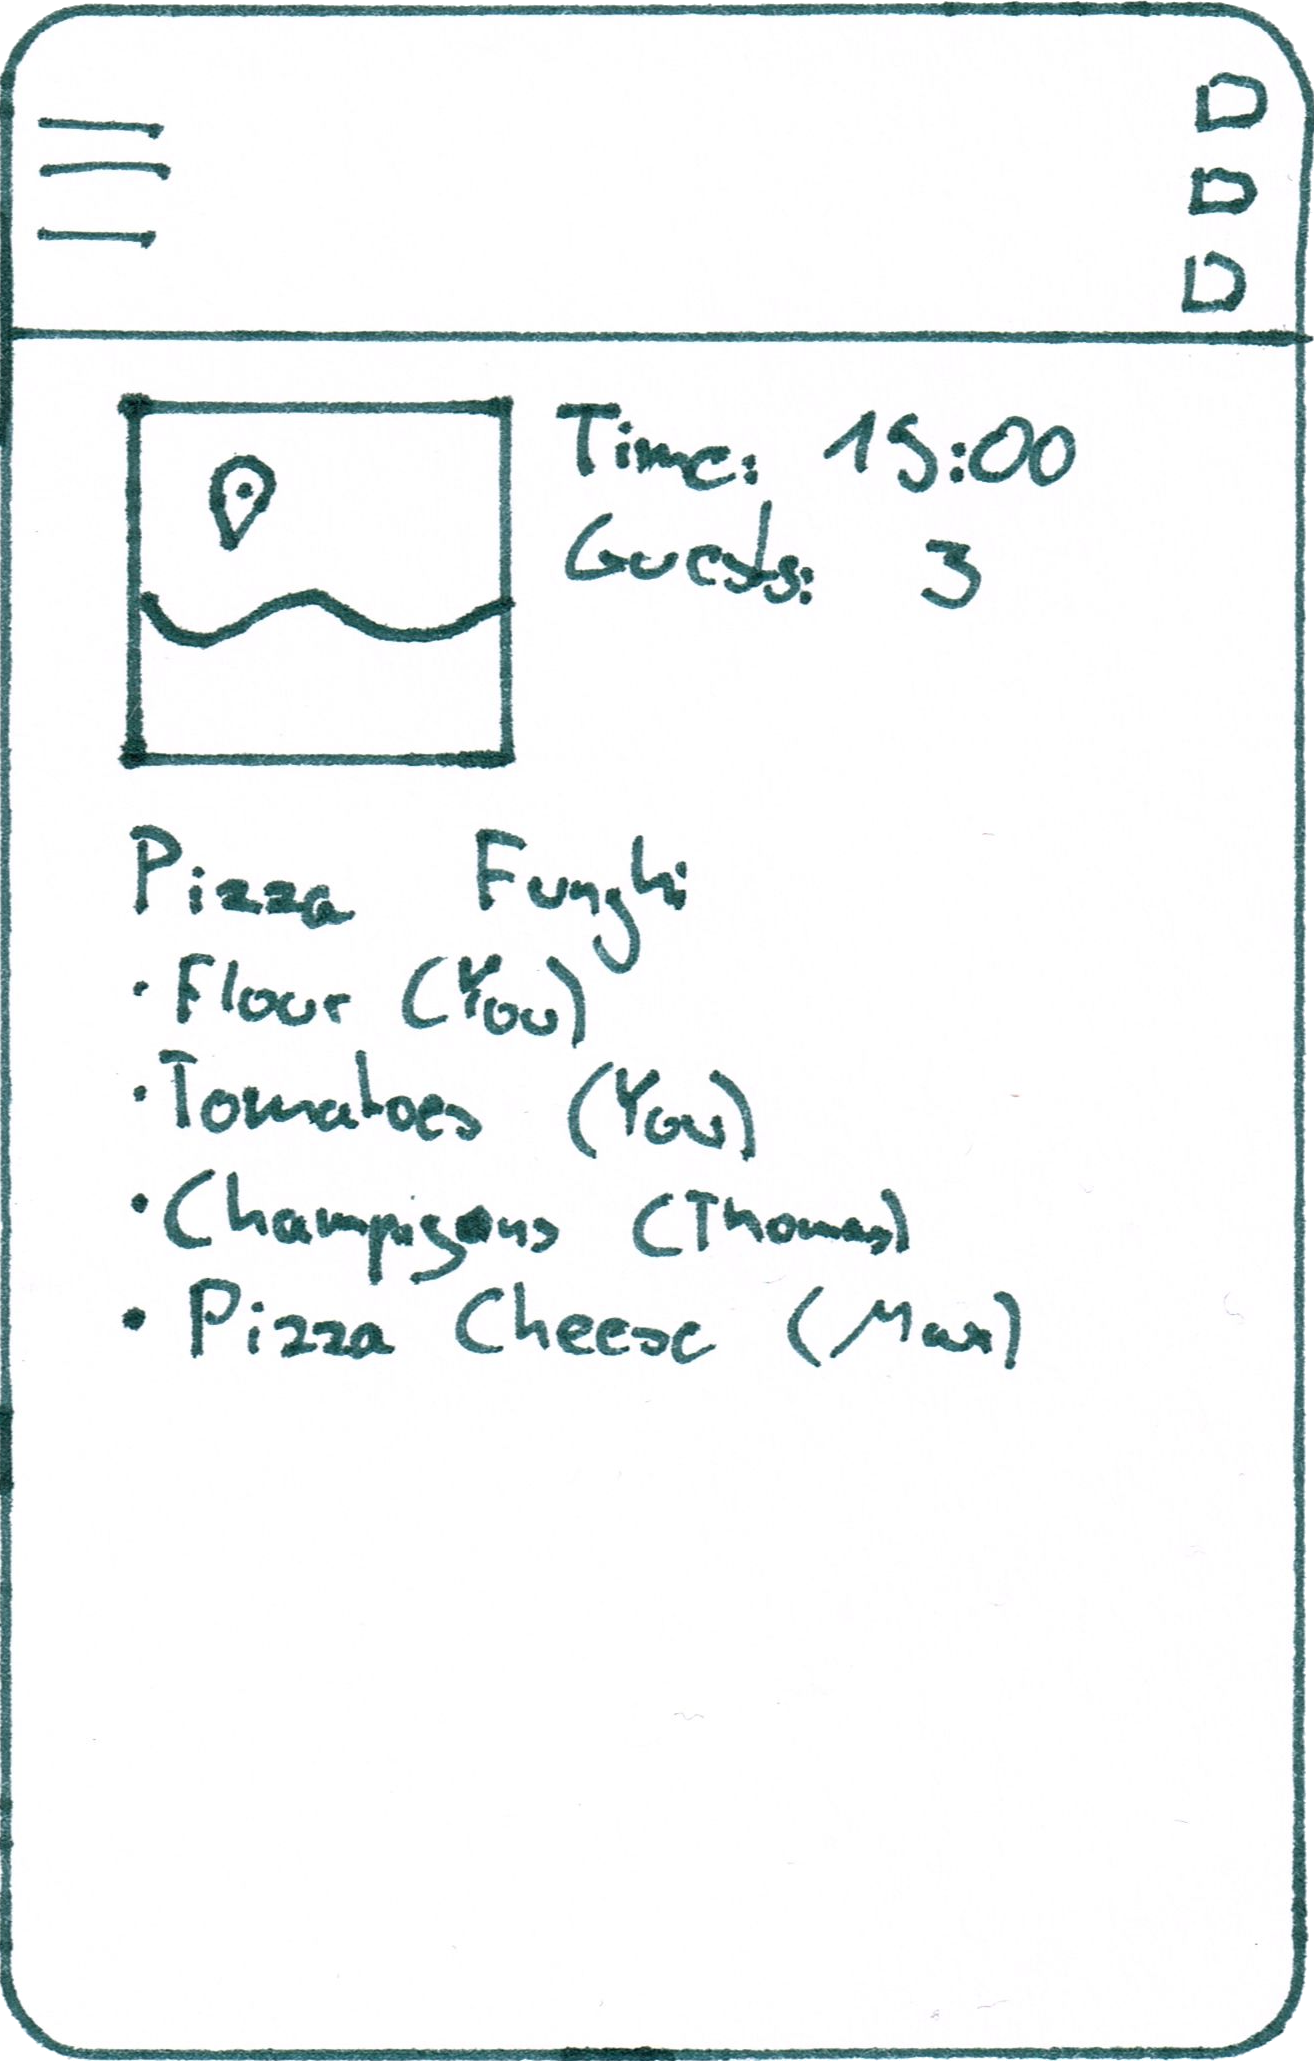 Time: 15:00
Guests: 3
Pizza Funghi
· Flour (You)
· Tomatoes (You)
· Champigons (Thomas)
· Pizza Cheese (Max)